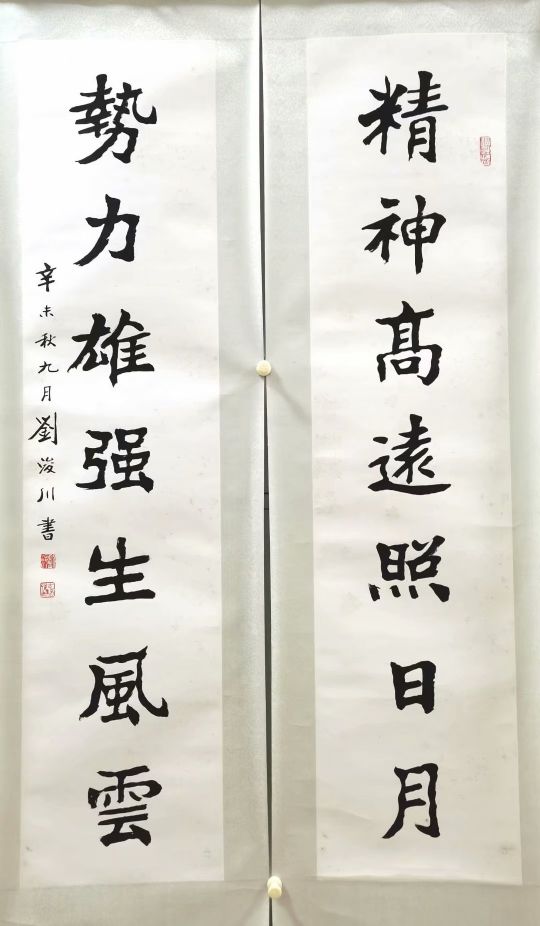 精神髙遠照日月
勢力雄强生風雲
辛未秋九月劉浚川書